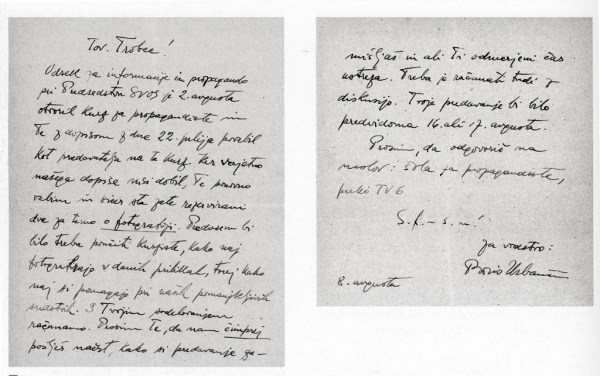 Tov. Trobec!
Odsek za informacije in propagando
pri Predsedstvu SNOS je 2. avgusta
otvoril kurz za propagandiste in
Te z dopisom z dne 22. julija povabil
kot predavatelja na ta kurz. Ker verjetno
našega dopisa nisi dobil, Te ponovno
vabim in sicer sta zate rezervirani
dve za temo o fotografiji. Predvsem bi
bilo treba poučiti kurziste, kako naj
fotografirajo v danih prilikah, torej kako
naj si pomagajo pri naših pomanjkljivih
sredstvih. S Tvojim sodelovanjem
računamo. Prosim Te, da nam čimprej
pošlješ načrt, kako si predavanje za-
mišljaš in ali Ti odmerjeni čas
ustreza. Treba je računati tudi z
diskusijo. Tvoje predavanje bi bilo
predvidoma 16. ali 17. avgusta.
Prosim, da odgovoriš na
naslov: Šola za propagandiste,
preko TV 6
S. f. - s. n.!
Za vodstvo:
8. avgusta